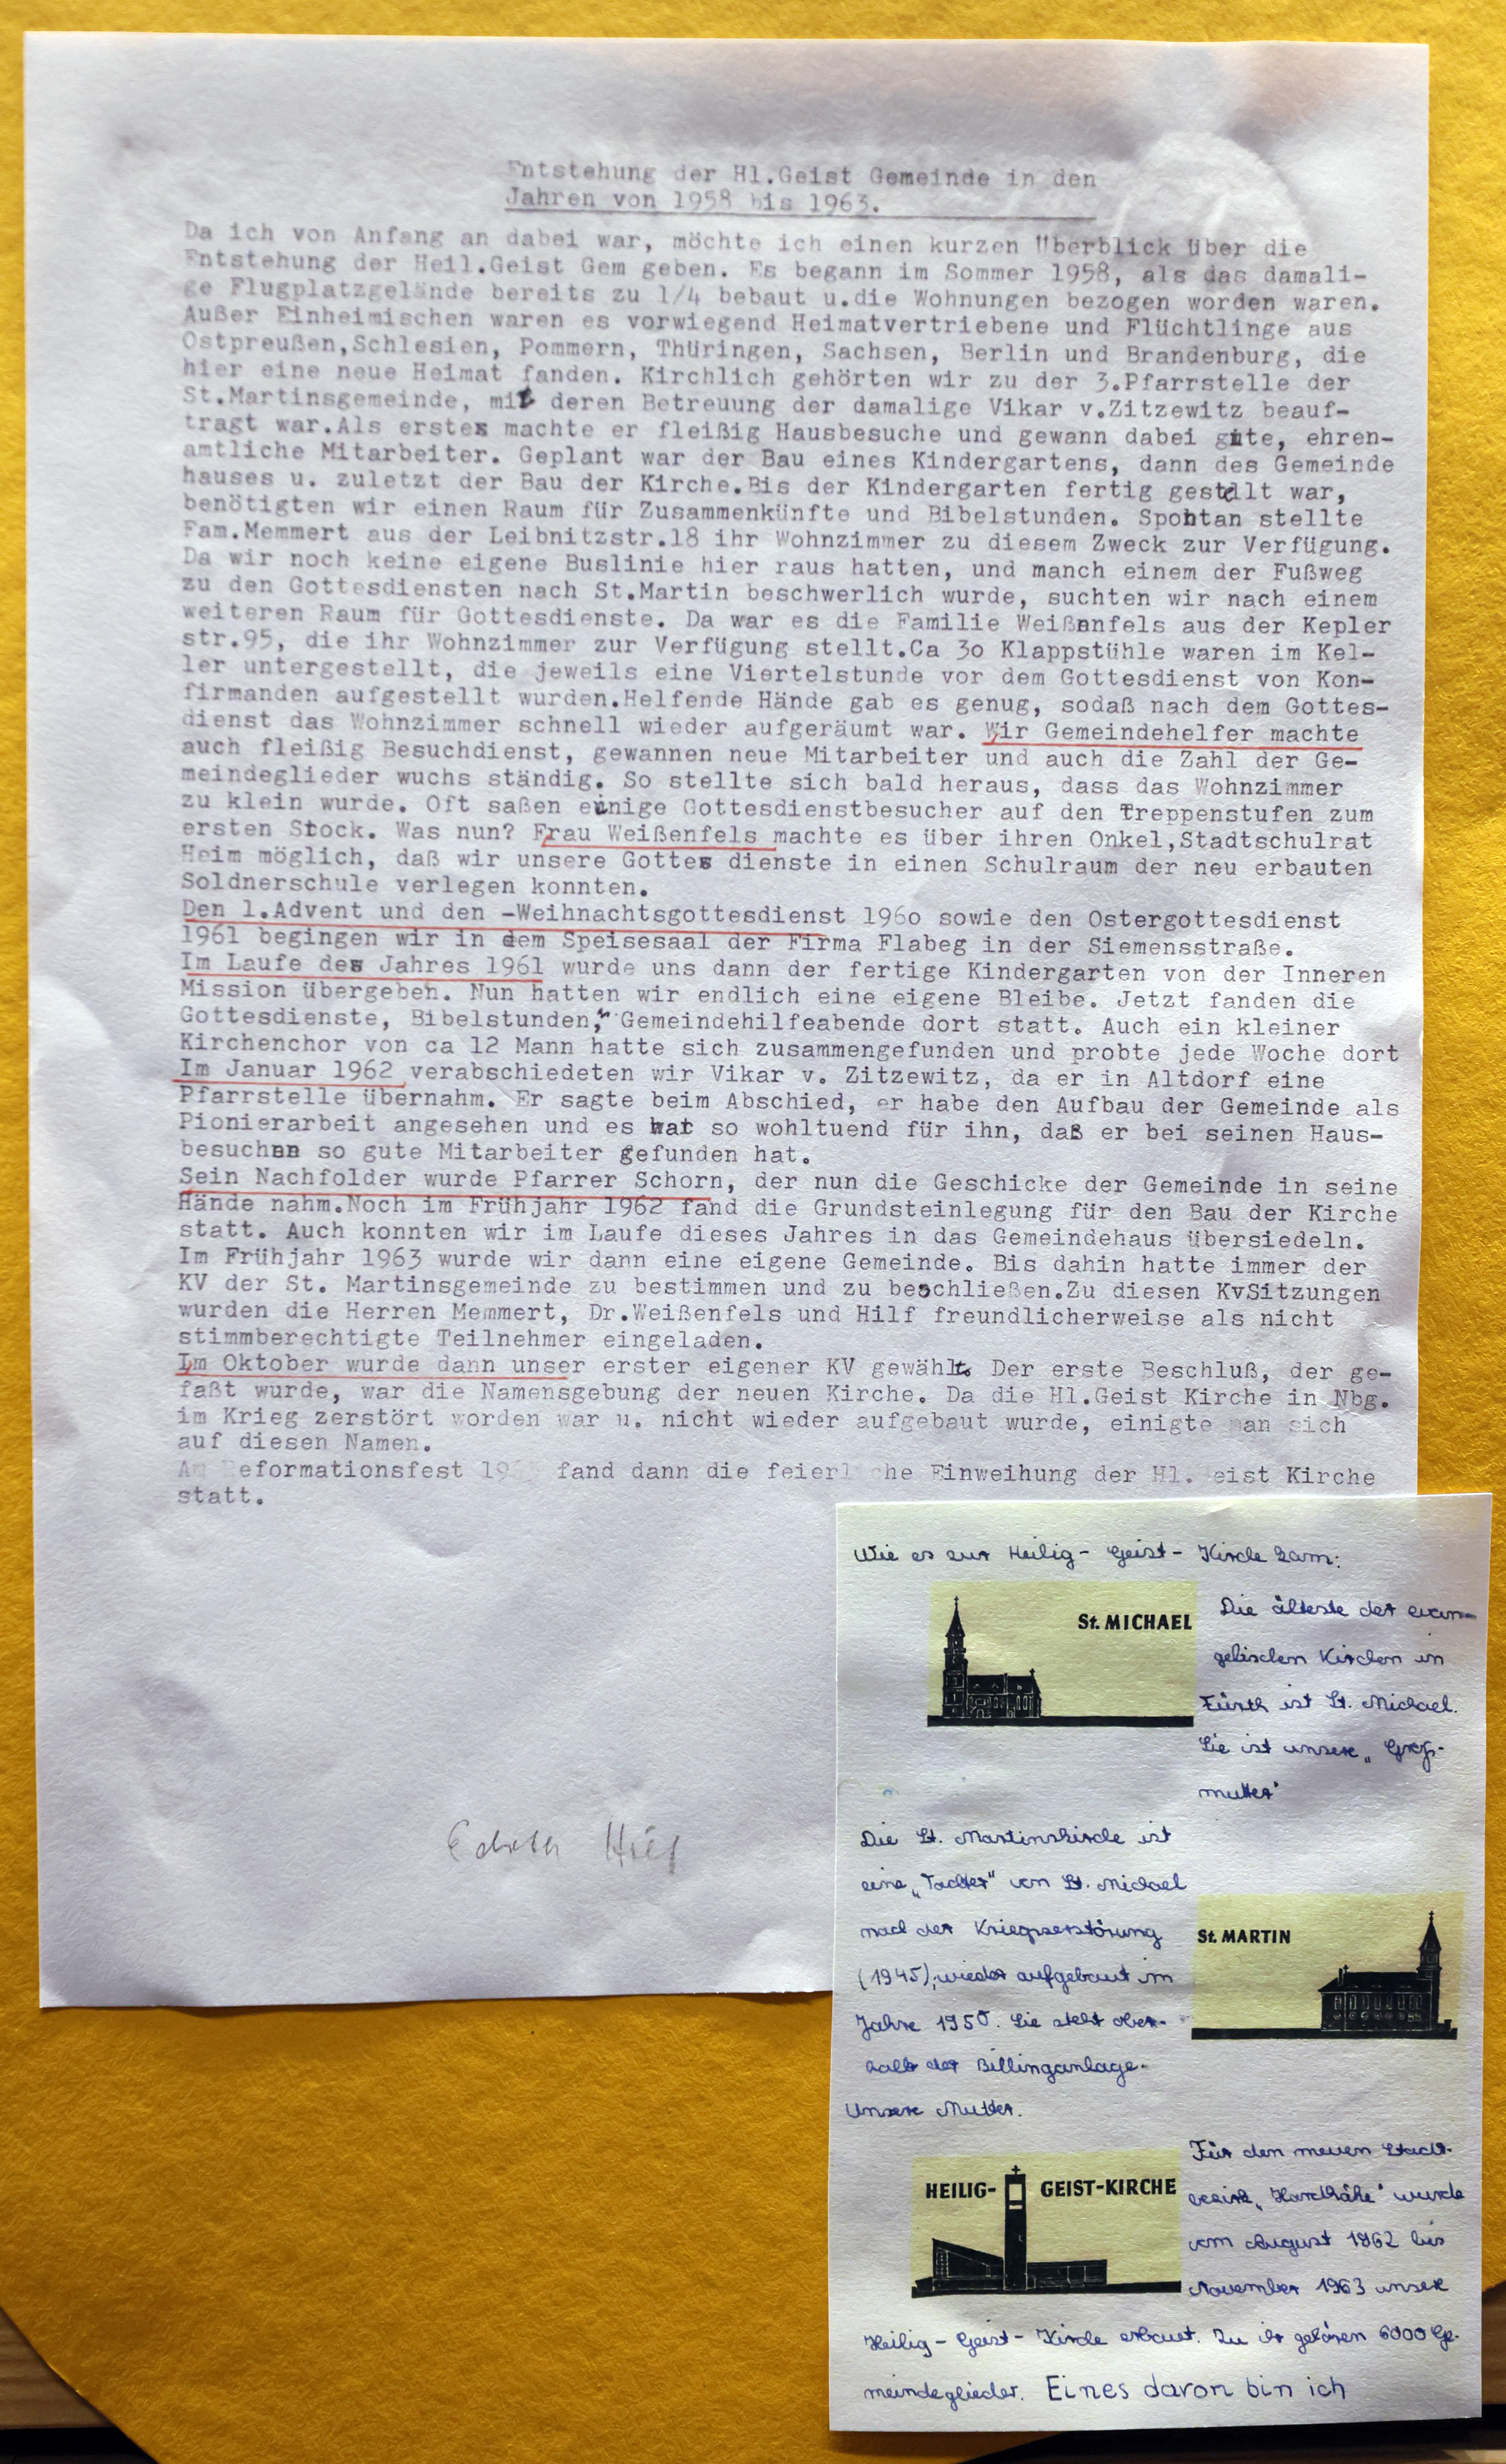 Entstehung der Hl.Geist Gemeinde in den
Jahren von 1958 bis 1963.
Da ich von Anfang an dabei war, möchte ich einen kurzen Überblick über die
Entstehung der Heil.Geist Gem geben. Es begann im Sommer 1958, als das damali-
ge Flugplatzgelände bereits zu 1/4 bebaut u.die Wohnungen bezogen worden waren.
Außer Einheimischen waren es vorwiegend Heimatvertriebene und Flüchtlinge aus
Ostpreußen,Schlesien, Pommern, Thüringen, Sachsen, Berlin und Brandenburg, die
hier eine neue Heimat fanden. Kirchlich gehörten wir zu der 3.Pfarrstelle der
St.Martinsgemeinde, mit deren Betreuung der damalige Vikar v.Zitzewitz beauf-
tragt war.Als erstes machte er fleißig Hausbesuche und gewann dabei gute, ehren-
amtliche Mitarbeiter. Geplant war der Bau eines Kindergartens, dann des Gemeinde
hauses u. zuletzt der Bau der Kirche.Bis der Kindergarten fertig gestellt war,
benötigten wir einen Raum für Zusammenkünfte und Bibelstunden. Spontan stellte
Fam.Memmert aus der Leibnitzstr.18 ihr Wohnzimmer zu diesem Zweck zur Verfügung.
Da wir noch keine eigene Buslinie hier raus hatten, und manch einem der Fußweg
zu den Gottesdiensten nach St.Martin beschwerlich wurde, suchten wir nach einem
weiteren Raum für Gottesdienste. Da war es die Familie Weißenfels aus der Kepler
str.95, die ihr Wohnzimmer zur Verfügung stellt.Ca 3o Klappstühle waren im Kel-
ler untergestellt, die jeweils eine Viertelstunde vor dem Gottesdienst von Kon-
firmanden aufgestellt wurden.Helfende Hände gab es genug, sodaß nach dem Gottes-
dienst das Wohnzimmer schnell wieder aufgeräumt war. Wir Gemeindehelfer machte
auch fleißig Besuchdienst, gewannen neue Mitarbeiter und auch die Zahl der Ge-
meindeglieder wuchs ständig. So stellte sich bald heraus, dass das Wohnzimmer
zu klein wurde. Oft saßen einige Gottesdienstbesucher auf den Treppenstufen zum
ersten Stock. Was nun? Frau Weißenfels machte es über ihren Onkel,Stadtschulrat
Heim möglich, daß wir unsere Gottes dienste in einen Schulraum der neu erbauten
Soldnerschule verlegen konnten.
Den 1.Advent und den -Weihnachtsgottesdienst 196o sowie den Ostergottesdienst
1961 begingen wir in dem Speisesaal der Firma Flabeg in der Siemensstraße.
Im Laufe des Jahres 1961 wurde uns dann der fertige Kindergarten von der Inneren
Mission übergeben. Nun hatten wir endlich eine eigene Bleibe. Jetzt fanden die
Gottesdienste, Bibelstunden, Gemeindehilfeabende dort statt. Auch ein kleiner
Kirchenchor von ca 12 Mann hatte sich zusammengefunden und probte jede Woche dort
Im Januar 1962 verabschiedeten wir Vikar v. Zitzewitz, da er in Altdorf eine
Pfarrstelle übernahm. Er sagte beim Abschied, er habe den Aufbau der Gemeinde als
Pionierarbeit angesehen und es war so wohltuend für ihn, daß er bei seinen Haus-
besuchen so gute Mitarbeiter gefunden hat.
Sein Nachfolder wurde Pfarrer Schorn, der nun die Geschicke der Gemeinde in seine
Hände nahm.Noch im Frühjahr 1962 fand die Grundsteinlegung für den Bau der Kirche
statt. Auch konnten wir im Laufe dieses Jahres in das Gemeindehaus übersiedeln.
Im Frühjahr 1963 wurde wir dann eine eigene Gemeinde. Bis dahin hatte immer der
KV der St. Martinsgemeinde zu bestimmen und zu beschließen.Zu diesen KvSitzungen
wurden die Herren Memmert, Dr.Weißenfels und Hilf freundlicherweise als nicht
stimmberechtigte Teilnehmer eingeladen.
Im Oktober wurde dann unser erster eigener KV gewählt. Der erste Beschluß, der ge-
faßt wurde, war die Namensgebung der neuen Kirche. Da die Hl.Geist Kirche in Nbg.
im Krieg zerstört worden war u. nicht wieder aufgebaut wurde, einigte man sich
auf diesen Namen.
Am Reformationsfest fand dann die feierliche Einweihung der Hl.Geist Kirche
statt.
Edith Hilf
Wie es zur Heilig-Geist-Kirche kam:
St. MICHAEL
Die älteste der evan-
gelischen Kirchen in
Fürth ist St. Michael.
Sie ist unsere „Groß-
mutter"
Die St. Martinskirche ist
eine „Tochter" von St. Michael
nach der Kriegszerstörung
(1945), wieder aufgebaut im
Jahre 1950. Sie steht ober-
halb der Billinganlage.
Unsere Mutter.
St. MARTIN
HEILIG-GEIST-KIRCHE
Für den neuen Stadt-
bezirk „Hardhöhe" wurde
vom August 1962 bis
November 1963 unsere
Heilig-Geist-Kirche erbaut. Zu ihr gehören 6000 Ge-
meindeglieder. Eines davon bin ich